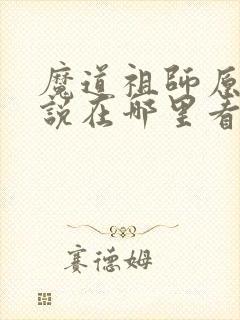 魔道祖師原
說在哪里看
賽德姆